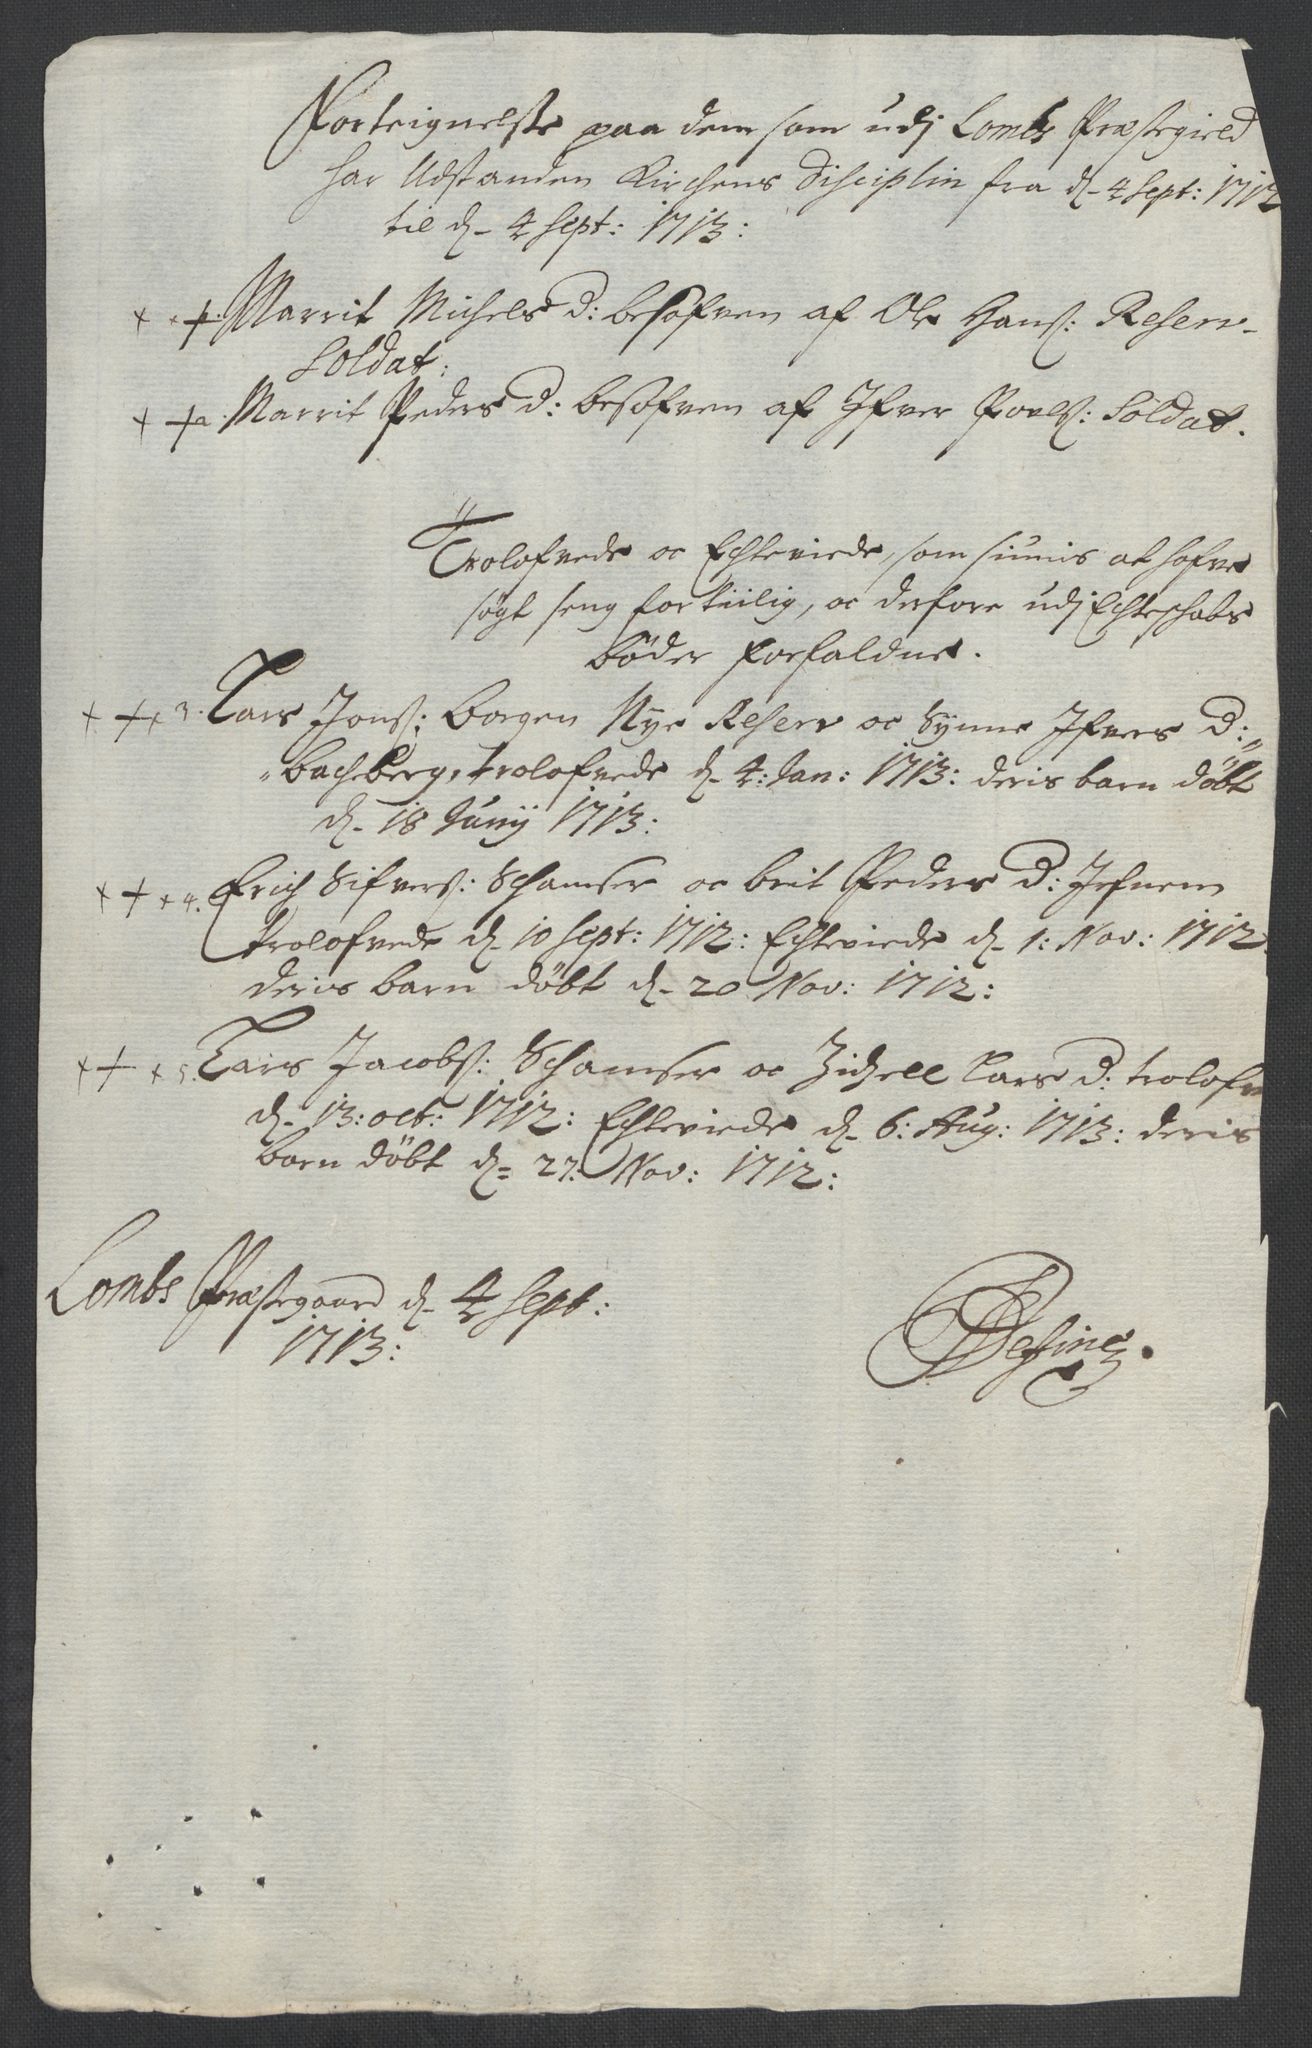 Forteignelse paa dem som udj Lombs Præstegield
har Udstanden Kirchens Disciplin fra d. 4 Sept: 1712
til d. 4 Sept: 1713:
+ + 1. Marrit Michels D: besofven af Ole Hans: Reserv-
Soldat:
+ + 2. Marrit Peders D: besofven af Ifver Povels: Soldat.
Trolofvede oc Echteviede, som siunis at hafve
søgt seng for tiilig, oc derfore udj Echteschabs
bøder forfaldne.
+ + + 3. Lars Jons: Borgen Nye Reserv oc Synne Ifvers D:
Bacheberg, trolofvede d. 4: Jan: 1713: deris barn døbt
d. 18 Junij 1713:
+ + + 4. Erich Sifvers: Schamser oc Brit Peders D:
trolofvede d. 10 Sept: 1712: Echteviede d. 1: Nov: 1712
deris barn døbt d. 20 Nov: 1712:
+ + + 5. Lars Jacobs: Schamser oc Zidzell Lars D: trolofv
d. 13: oct: 1712: Echteviede d. 6: Aug: 1713: deris
barn døbt d. 27. Nov: 1712:
Lombs Præstegaard d. 4 Sept:
1713: